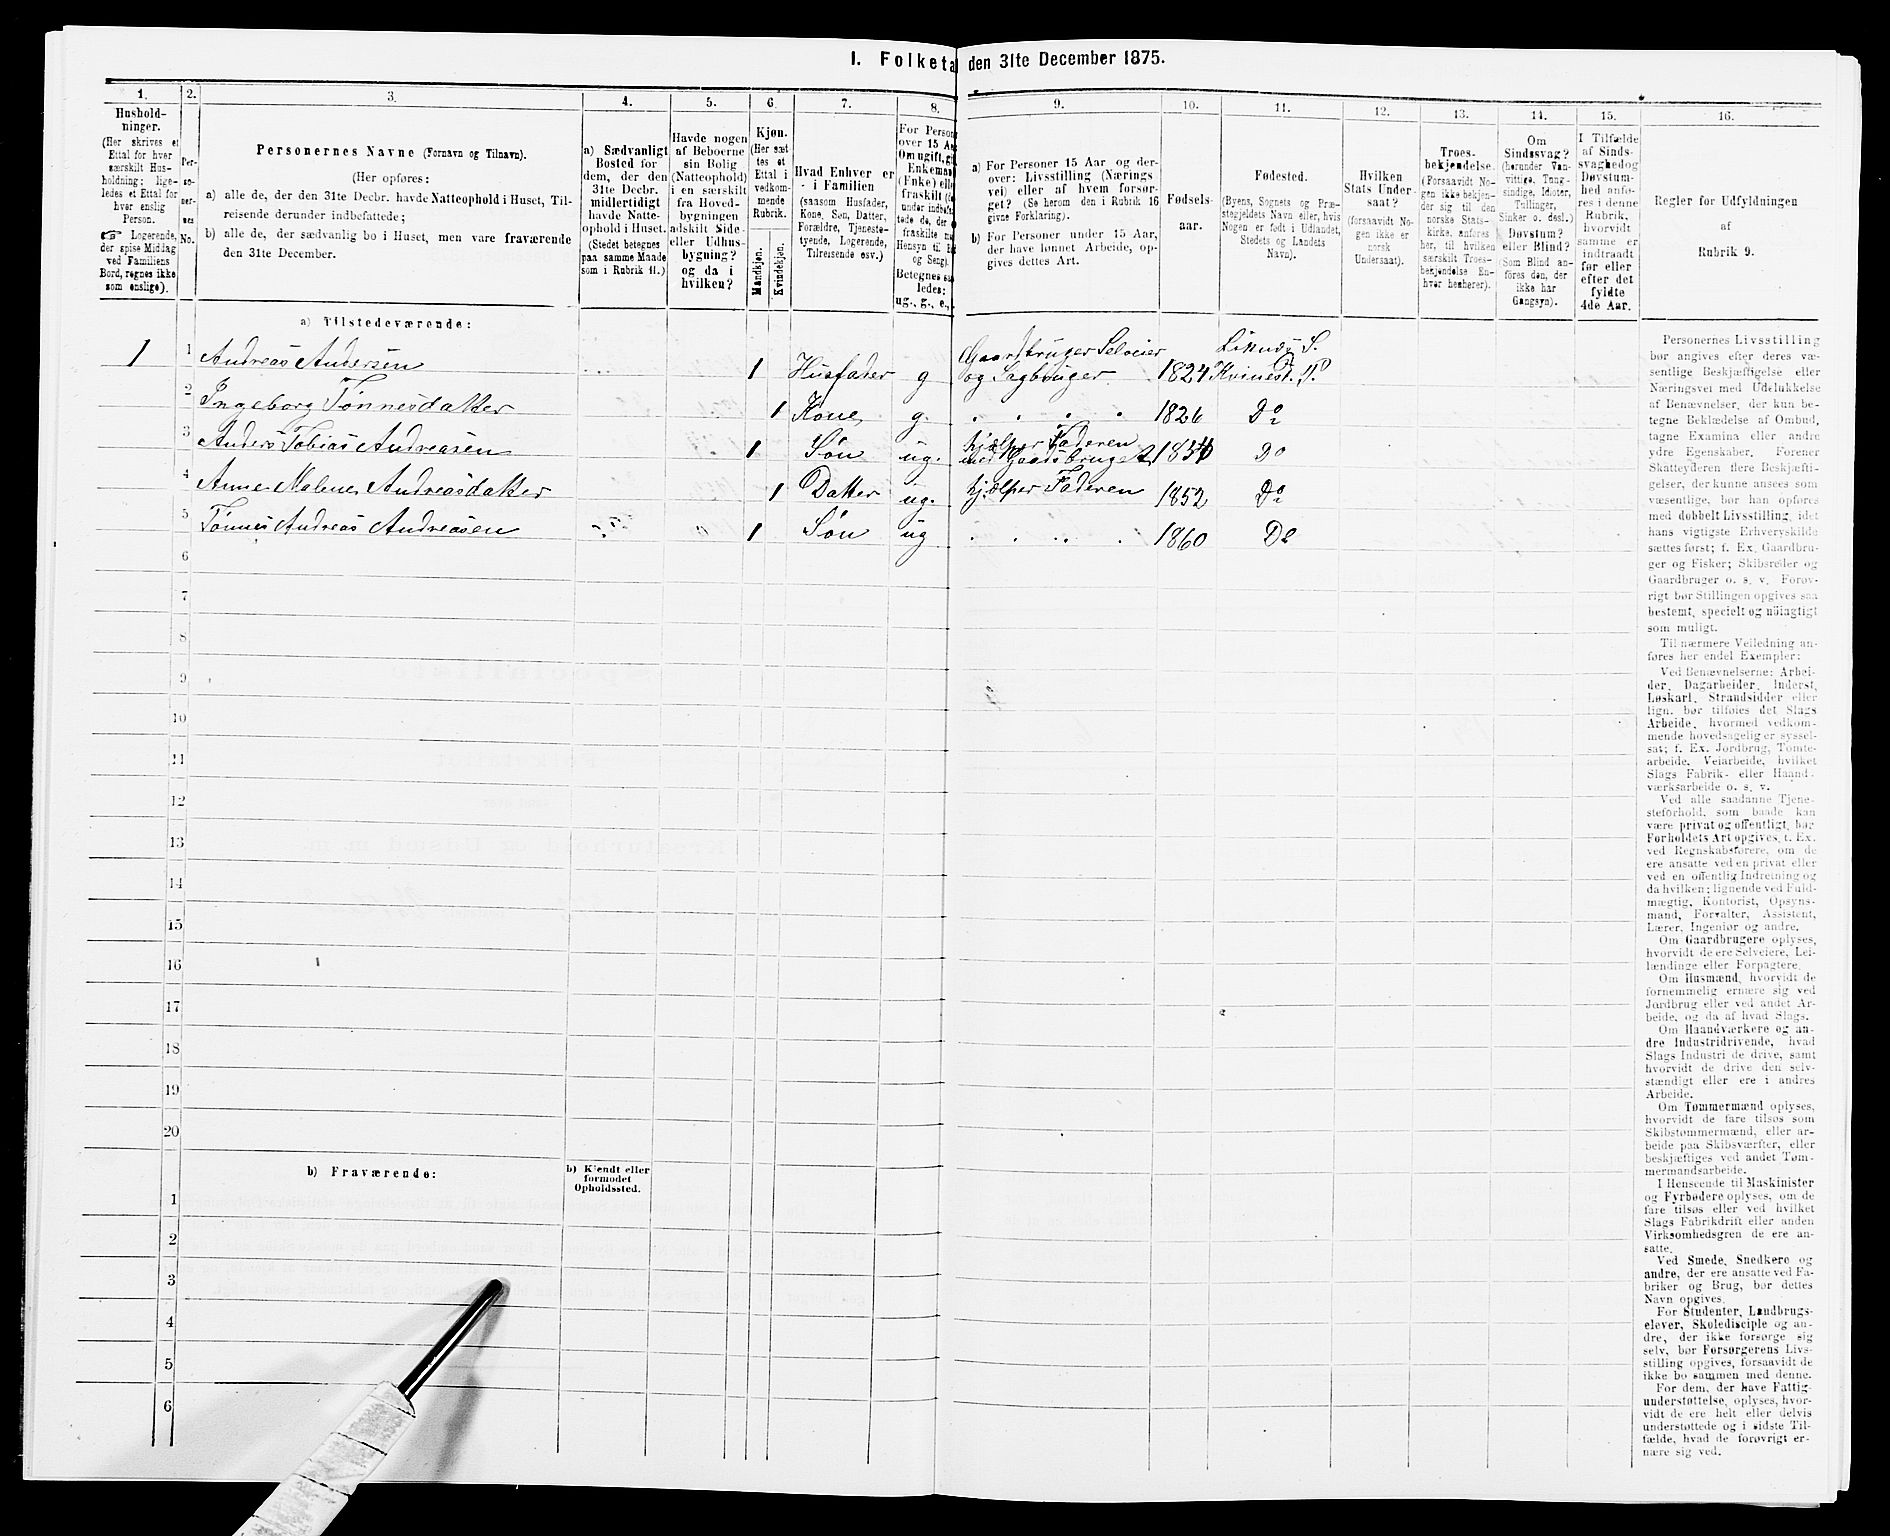 I. Folketa den 31te December 1875.
1. 2. 3. 4. 5. 6. 7. 8. 9. 10. 11. 12. 13. 14. 15. 16.
Hushold-
ninger.
(Her skrives et
Ettal for hver
særskilt Hus-
holdning; lige-
ledes et Ettal for
hver enslig
Person.
☞ Logerende,
der spise Middag
ved Familiens
Bord, regnes ikke
som enslige).
Per-
so-
ner-
nes
No.
Personernes Navne (Fornavn og Tilnavn).
(Her opføres:
a) alle de, der den 31te Decbr. havde Natteophold i Huset, Til-
reisende derunder indbefattede;
b) alle de, der sædvanlig bo i Huset, men vare fraværende
den 31te December.
a) Sædvanligt
Bosted for
dem, der den
31te Decbr.
midlertidigt
havde Natte-
ophold i Huset.
(Stedet betegnes
paa samme Maade
som i Rubrik 11.)
Havde nogen
af Beboerne
sin Bolig
(Natteophold)
i en særskilt
fra Hoved-
bygningen
adskilt Side-
eller Udhus-
bygning?
og da i
hvilken?
Kjøn.
(Her sæt
tes et
Ettal i
vedkom-
mende
Rubrik.
Mandkjøn.
Kvindekjøn.
Hvad Enhver er
i Familien
(saasom Husfader,
Kone, Søn, Datter,
Forældre, Tjeneste-
tyende, Logerende,
Tilreisende osv.)
For Person
over 15 Aa
Om ugift, gi
Enkeman
(Enke) elle
fraskilt (
under indbef
tede de, der
fraskilte m
Hensyn til B
og Seng).
Betegnes saa
ledes:
ug., g., e.,
a) For Personer 15 Aar og der-
over: Livsstilling (Nærings
vei) eller af hvem forsør-
get? (Se herom den i Rubrik 16
givne Forklaring).
b) For Personer under 15 Aar,
der have lønnet Arbeide, op-
gives dettes Art.
Fødsels-
aar.
Fødested.
(Byens, Sognets og Præ-
stegjeldets Navn eller, hvis
Nogen er født i Udlandet,
Stedets og Landets
Navn).
Hvilken
Stats Under-
saat?
(forsaavidt No-
gen ikke er
norsk
Undersaat).
Troes-
bekjendelse.
(Forsaavidt No-
gen ikke bekjen-
der sig til den
norske Stats-
kirke, anføres
her, til hvilken
særskilt Troes-
bekjendelse En-
hver henhører).
Om
Sindssvag?
(herunder Van-
vittige, Tung-
sindige, Idioter,
Tullinger,
Sinker o. desl.)
Døvstum?
eller Blind?
(Som Blind an-
føres den, der
ikke har
Gangsyn).
I Tilfælde
af Sinds-
svaghed og
Døvstum-
hed anfø-
res i denne
Rubrik,
hvorvidt
samme er
indtraadt
før eller
efter det
fyldte
4de Aar.
Regler for Udfyldningen
af
Rubrik 9.
a) Tilstedeværende:
1 1 Andreas Andersen 1 Husfader g Gaardbruger Selveier og Sagbruger 1824 Liknæs S. Kvinesd. P.
2 Ingeborg Tønnesdatter 1 Kone g. 1826 Do
3 Anders Tobias Andreasen 1 Søn ug. hjælper Faderen med Gaardsbruget Do
4 Anne Malene Andreasdatter 1 Datter ug. hjælper Faderen 1852 Do
5 Tønnes Andreas Andreasen 1 Søn ug 1860 Do
6
7
8
9
10
11
12
13
14
15
16
17
18
19
20
b) Fraværende:
b) Kjendt eller
formodet
Opholdssted.
1
2
3
4
5
6
Personernes Livsstilling
bør angives efter deres væ-
sentlige Beskjæftigelse eller
Næringsvei med Udelukkelse
af Benævnelser, der kun be-
tegne Beklædelse af Ombud,
tagne Examina eller andre
ydre Egenskaber. Forener
Skatteyderen flere Beskjæfti-
gelser, der kunne ansees som
væsentlige, bør han opføres
med dobbelt Livsstilling, idet
hans vigtigste Erhverskilde
sættes først; f. Ex. Gaardbru-
ger og Fisker; Skibsreder og
Gaardbruger o. s. v. Forøv-
rigt bør Stillingen opgives saa
bestemt, specielt og nöiagtigt
som muligt.
Til nærmere Veiledning an-
føres her endel Exempler:
Ved Benævnelserne: Arbei-
der, Dagarbeider, Inderst,
Løskarl, Strandsidder eller
lign. bør tilføies det Slags
Arbeide, hvormed vedkom-
mende hovedsagelig er syssel-
sat; f. Ex. Jordbrug, Tomte-
arbeide, Veiarbeide, hvilket
Slags Fabrik- eller Haand-
værksarbeide o. s. v.
Ved alle saadanne Tjene-
steforhold, som baade kan
være privat og offentligt, bør
Forholdets Art opgives, t. Ex.
ved Regnskabsførere, om de
ere ansatte ved en privat eller
ved en offentlig Indretning og
da hvilken; lignende ved Fuld-
mægtig, Kontorist, Opsyns-
mand, Forvalter, Assistent,
Lærer, Ingeniør og andre.
Om Gaardbrugere oplyses,
hvorvidt de ere Selveiere, Lei-
lændinge eller Forpagtere.
Om Husmænd, hvorvidt de
fornemmelig ernære sig ved
Jordbrug eller ved andet Ar-
beide, og da af hvad Slags.
Om Haandværkere og an-
dre Industridrivende, hvad
Slags Industri de drive, samt
hvorvidt de drive den selv-
stændigt eller ere i andres
Arbeide.
Om Tømmermænd oplyses,
hvorvidt de fare tilsøs som
Skibstømmermænd, eller ar-
beide paa Skibsværfter, eller
beskjæftiges ved andet Tøm-
mermandsarbeide.
I Henseende til Maskinister
og Fyrbødere oplyses, om de
fare tilsøs eller ved hvilket
Slags Fabrikdrift eller anden
Virksomhedsgren de ere an-
satte.
Ved Smede, Snedkere og
andre, der ere ansatte ved Fa-
briker og Brug, bør dettes
Navn opgives.
For Studenter, Landbrugs-
elever, Skoledisciple og an-
dre, der ikke forsørge sig
selv, bør Forsørgerens Livs-
stilling opgives, forsaavidt de
ikke bo sammen med denne.
For dem, der have Fattig-
understøttelse, oplyses, hvor-
vidt de ere helt eller delvis
understøttede og i sidste Til-
fælde, hvad de forøvrigt er-
nære sig ved.